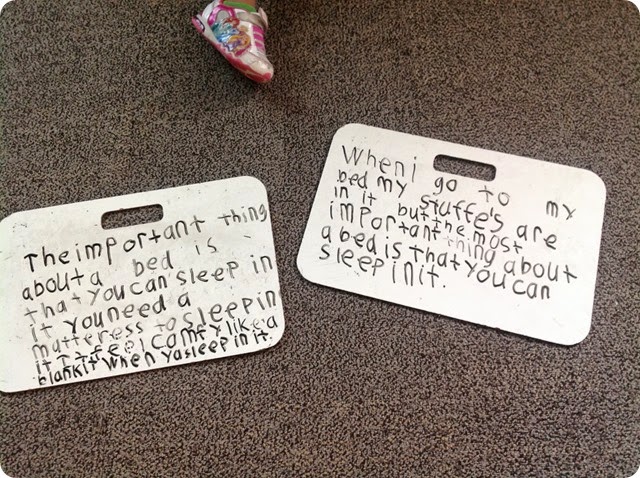 The important thing
about a bed is
that you can sleep in
it you need a
mutteress to sleep in
it it feel comfy like a
blankit when ya sleep in it.
When i go to my
bed my stuffe's are
in it but the most
important thing about
a bed is that you can
sleep in it.